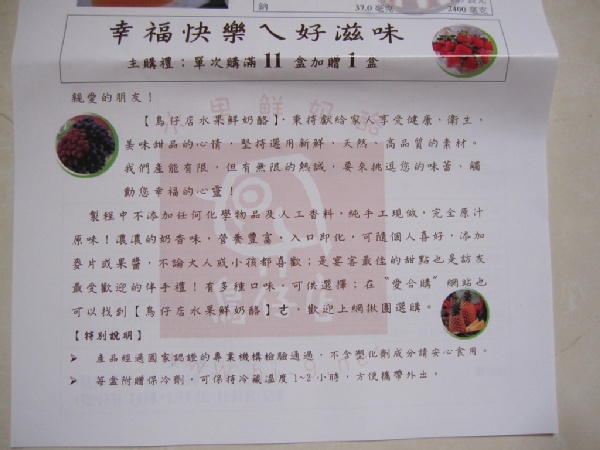 鈉 37.0 毫克 2400 毫克
幸福快樂ㄟ好滋味
主購禮：單次購滿 11 盒加贈 1 盒
親愛的朋友！
【鳥仔店水果鮮奶酪】，秉持獻給家人享受健康、衛生、
美味甜品的心情，堅持選用新鮮、天然、高品質的素材。
我們產能有限，但有無限的熱誠，要來挑逗您的味蕾、觸
動您幸福的心靈！
製程中不添加任何化學物品及人工香料，純手工現做，完全原汁
原味！濃濃的奶香味，營養豐富，入口即化，可隨個人喜好，添加
麥片或果醬，不論大人或小孩都喜歡；是宴客最佳的甜點也是訪友
最受歡迎的伴手禮！有多種口味，可供選擇；在“愛合購”網站也
可以找到【鳥仔店水果鮮奶酪】ㄜ，歡迎上網揪團選購。
【特別說明】
➢ 產品經過國家認證的專業機構檢驗通過，不含塑化劑成分請安心食用。
➢ 每盒附贈保冷劑，可保持冷藏溫度1~2小時，方便攜帶外出。
水果鮮奶酪
鳥仔店